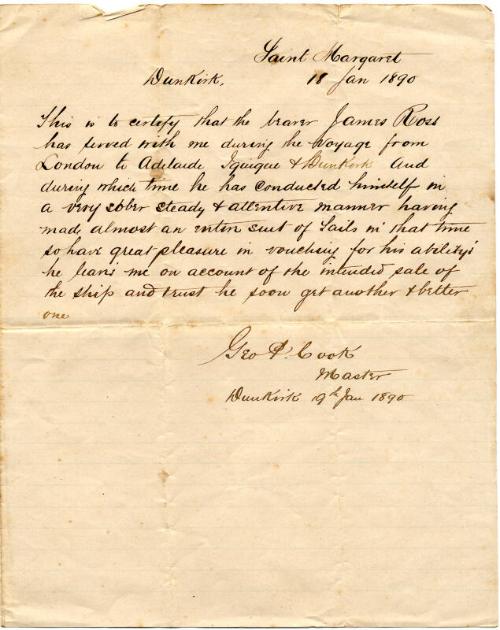 Saint Margaret
Dunkirk, 18 Jan 1890
This is to certify that the bearer James Ross
has served with me during the voyage from
London to Adelaide Iquique & Dunkirk And
during which time he has conducted himself in
a very sober steady & attentive manner having
made almost an entire suit of Sails in that time
so have great pleasure in vouching for his ability;
he leaves me on account of the intended sale of
the ship and trust he soon get another & better
one
Geo P. Cook
Master
Dunkirk 19th Jan 1890